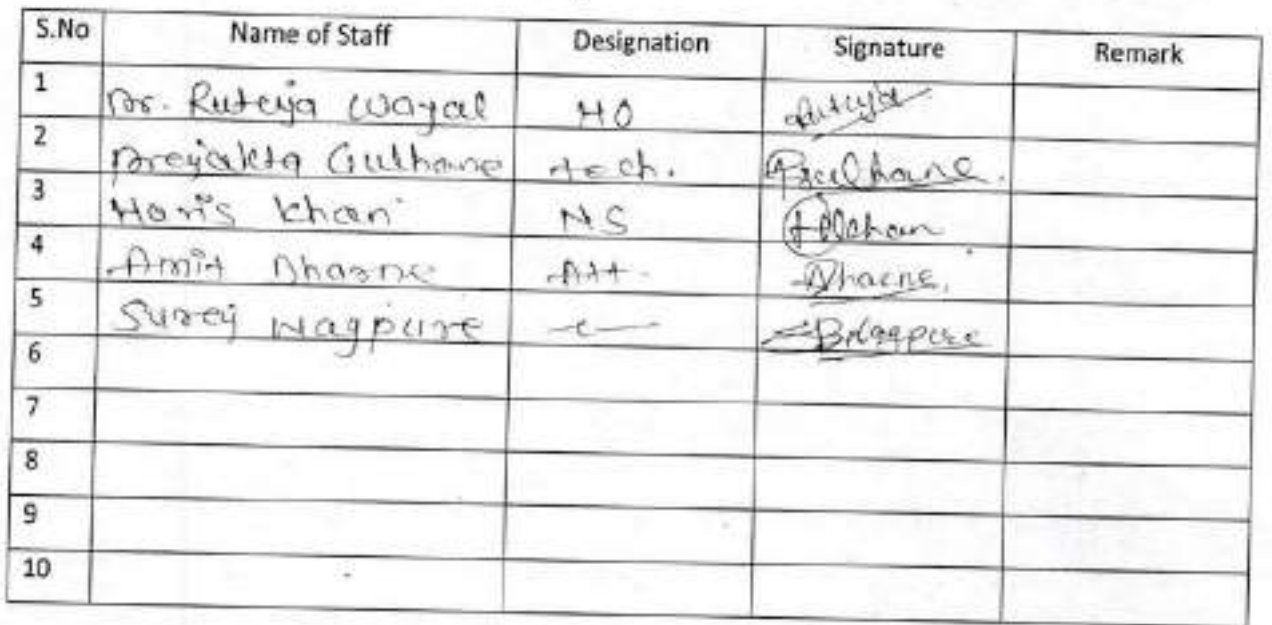 S.No Name of Staff Designation Signature Remark
1 Dr. Ruteja Wayal MO Ruteja
2 Prejakta Gulhane tech. PGulhane.
3 Haris Khan NS HKhan
4 Amit Dharne Att. Dharne.
5 Surej Nagpure Nagpure
6
7
8
9
10